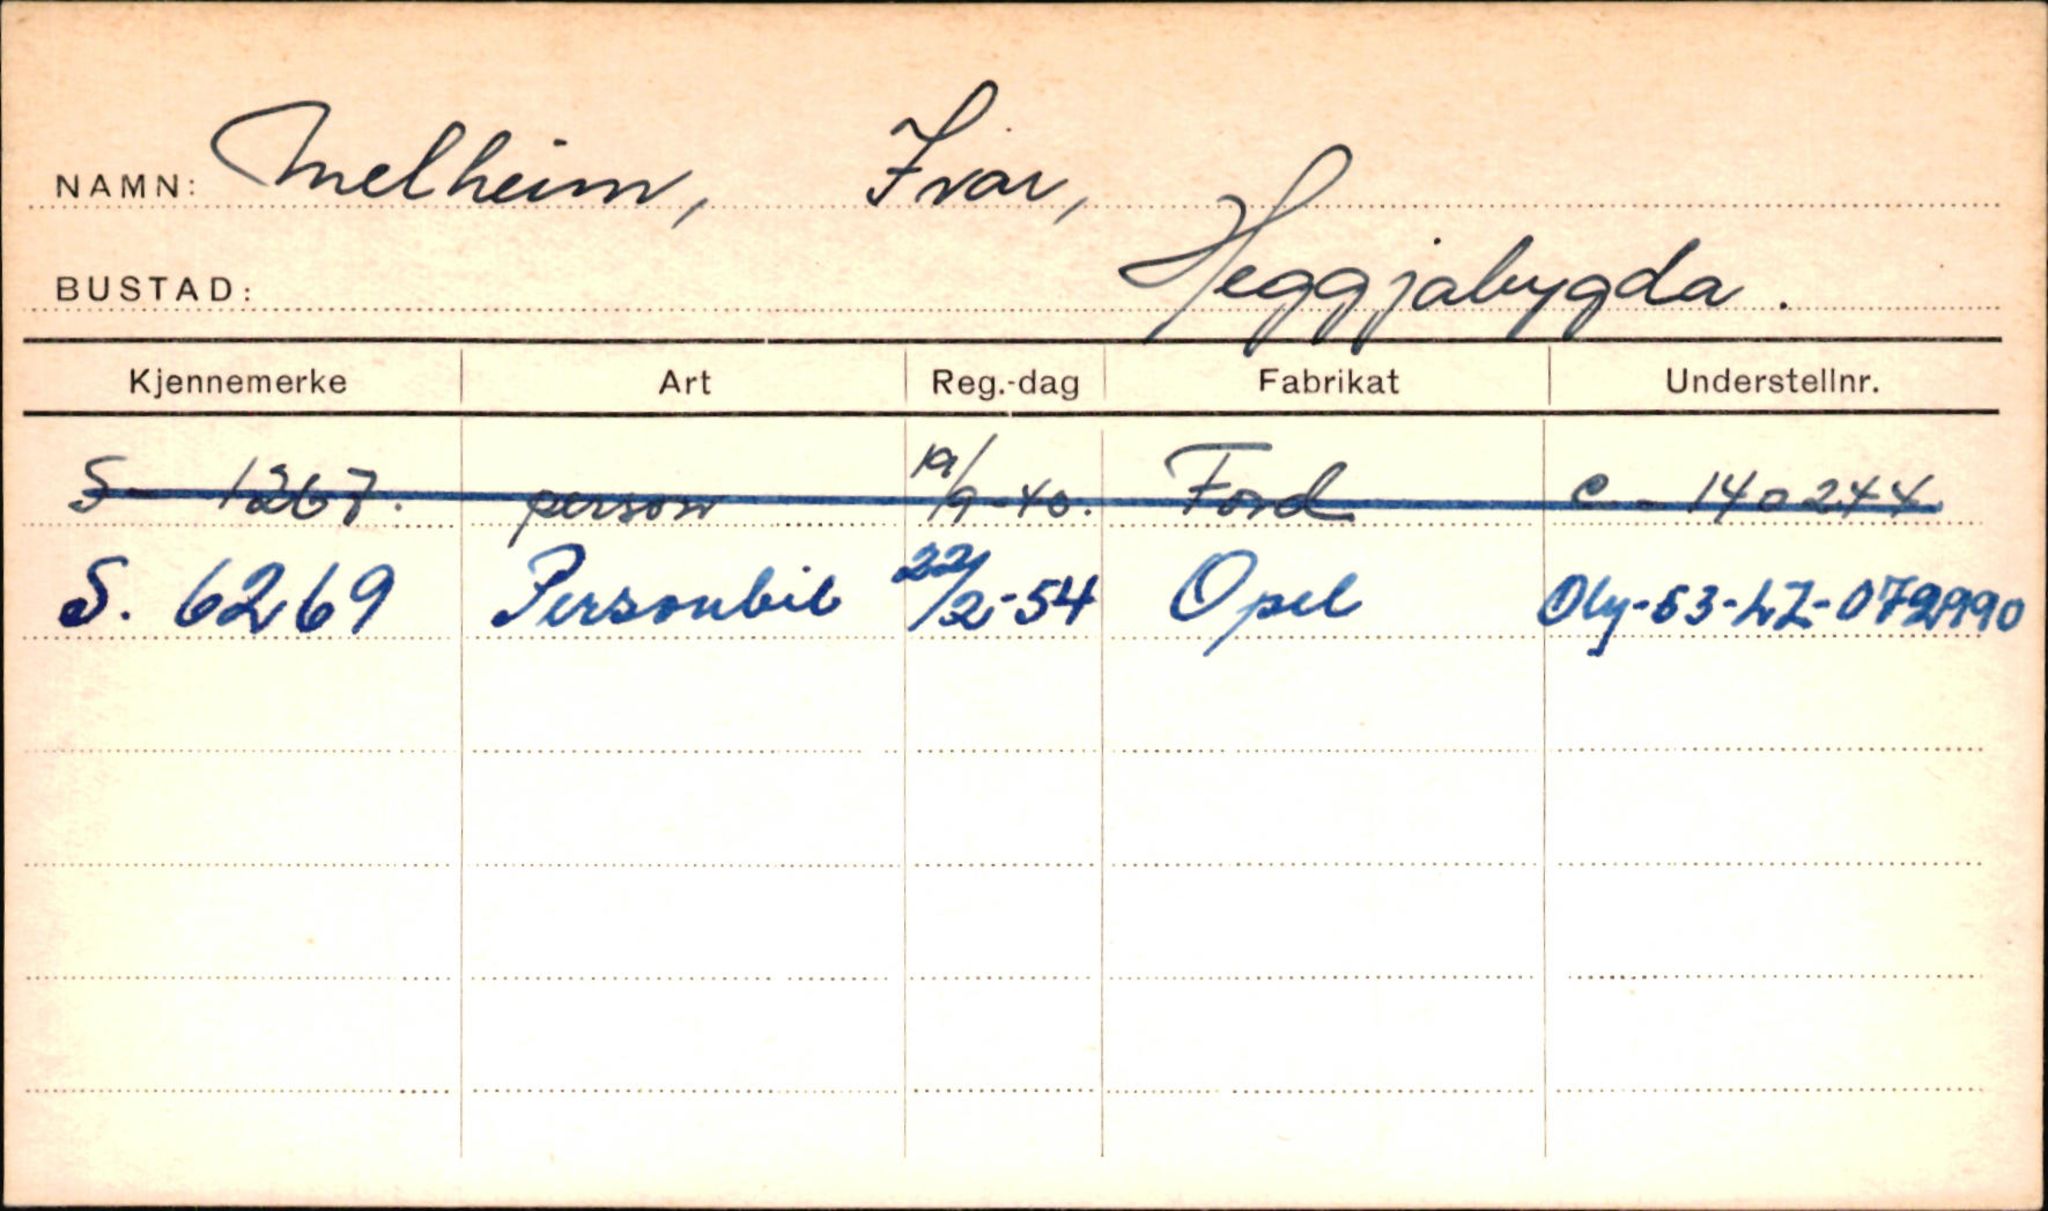 NAMN: Melheim, Ivar,
BUSTAD: Heggjabygda.
Kjennemerke Art Reg.-dag Fabrikat Understellnr.
S - 1267. person 19/9-40. Ford C - 140244
S. 6269 Personbil 22/2-54 Opel Oly-53-LZ-072990